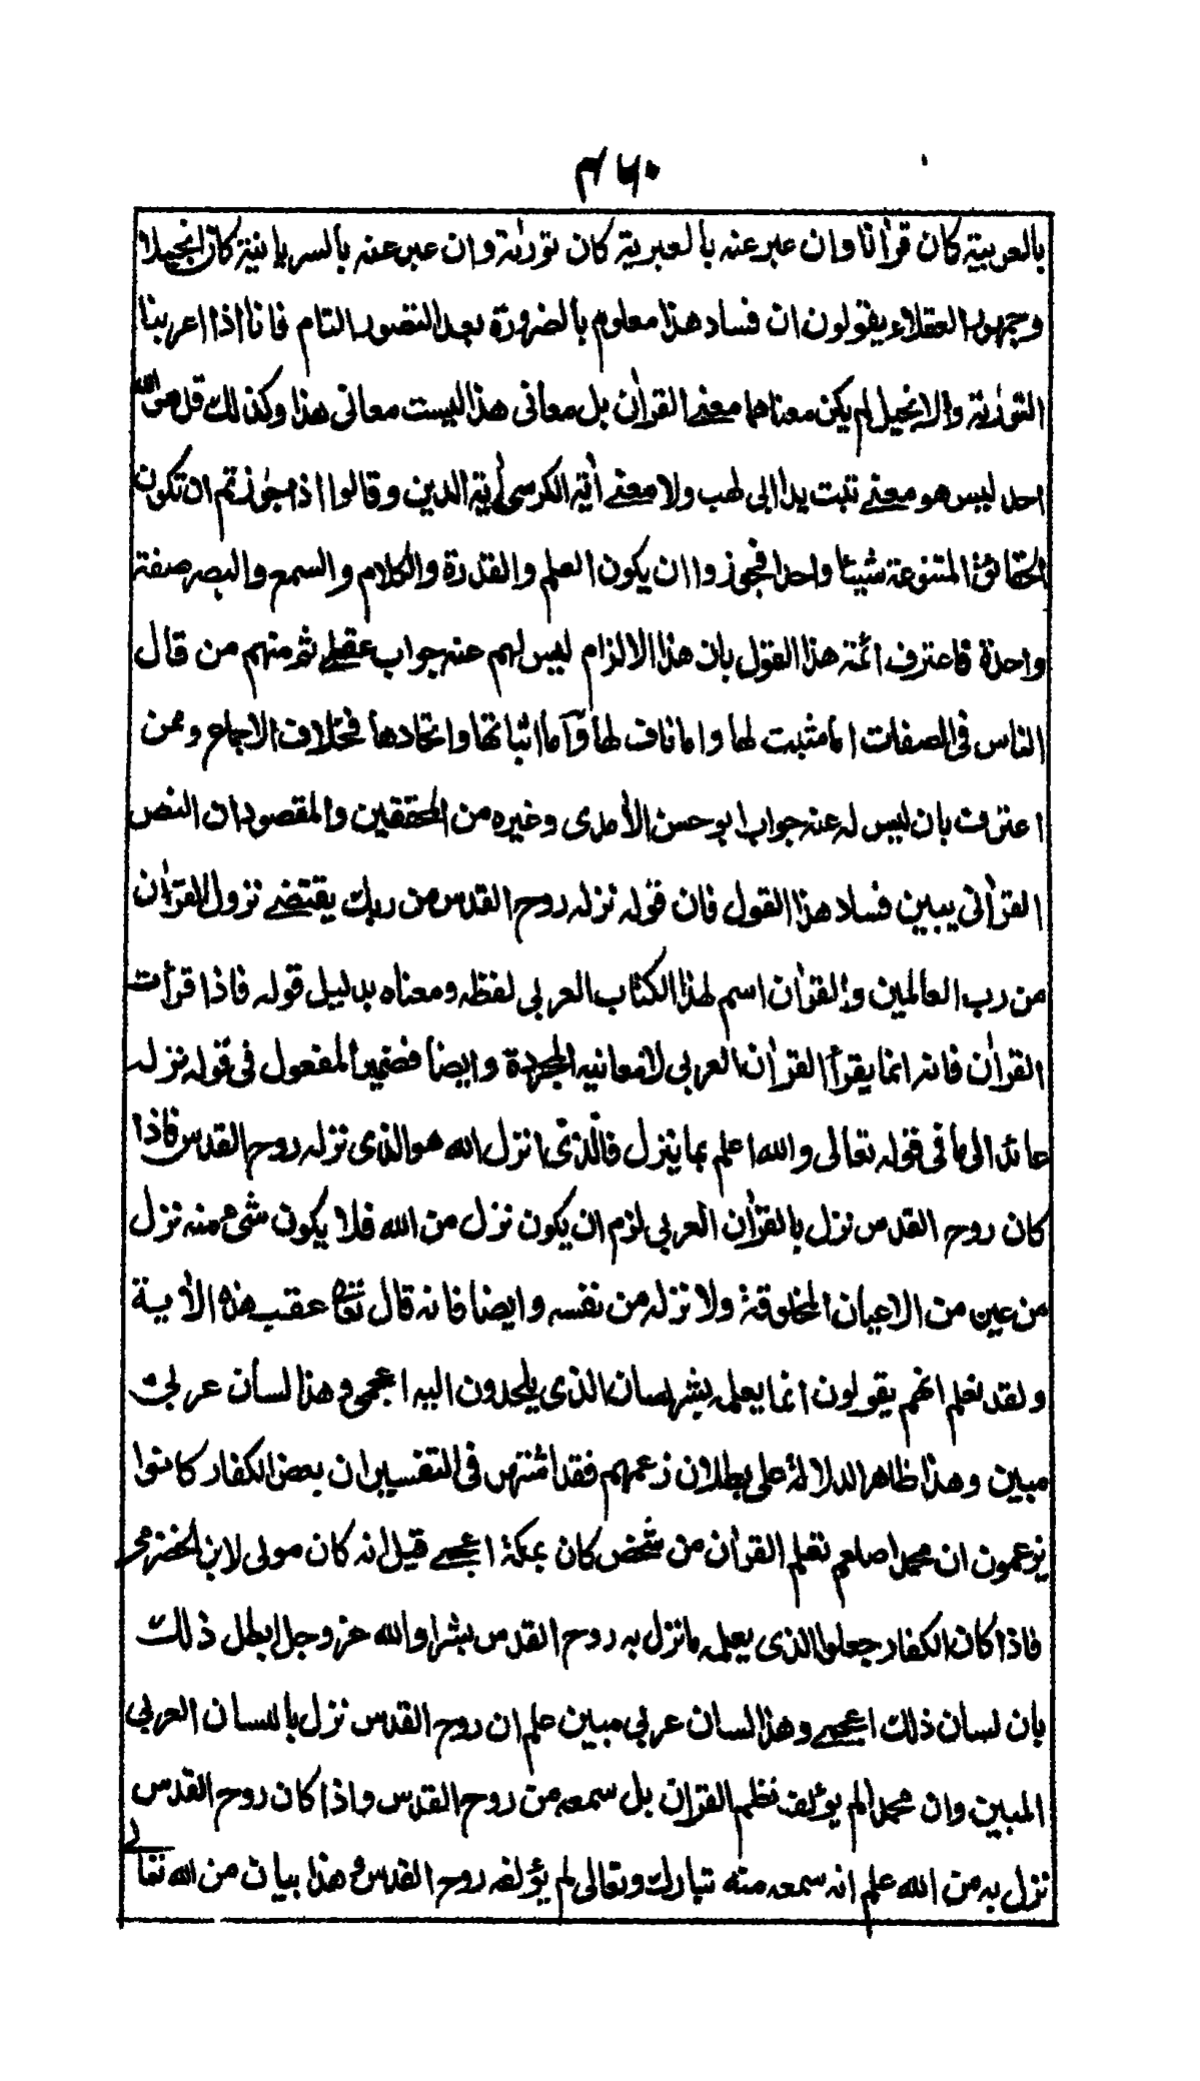 ۴۶۰
بالعربية كان قرأنا وان عبر عنه بالعبرية كان تورٰىة وان عبر عنه بالسريانية كان انجيلا
وجمهور العقلاء يقولون ان فساد هذا معلوم بالضرورة بعد التصور التام فانا اذا عربنا
التورٰىة والانجيل لم يكن معناهما معنى القرأن بل معانى هذا ليست معانى هذا وكذلك قل هو الله
احد ليس هو معنى تبت يدا ابى لهب ولا معنى أية الكرسى أية الدين وقالوا اذا جوزتم ان تكون
الحقائق المتنوعة شيئا واحدا فجوزوا ان يكون العلم والقدرة والكلام والسمع والبصر صفة
واحدة فاعترف ائمة هذا القول بان هذا الالزام ليس لهم عنه جواب عقلى ثم منهم من قال
الناس فى الصفات اما مثبت لها واما ناف لها وآما اثباتها واتحادها فخلاف الاجماع وممن
اعترف بان ليس له عنه جواب ابو حسن الأمدى وغيره من المحققين والمقصود ان النص
القرأنى يبين فساد هذا القول فان قوله نزله روح القدس من ربك يقتضى نزول القرأن
من رب العالمين والقرأن اسم لهذا الكتاب العربى لفظه ومعناه بدليل قوله فاذا قرأت
القرأن فانه انما يقرأ القرأن العربى لا معانيه المجردة وايضا فضمير المفعول فى قوله نزله
عائد الى ما فى قوله تعالى والله اعلم بما ينزل فالذى انزل الله هو الذى نزله روح القدس فاذا
كان روح القدس نزل بالقرأن العربى لزم ان يكون نزل من الله فلا يكون شىء منه نزل
من عين من الاعيان المخلوقة ولا نزله من نفسه وايضا فانه قال تعالى عقب هذه الأية
ولقد نعلم انهم يقولون انما يعلمه بشر لسان الذى يلحدون اليه اعجمى وهذا لسان عربى
مبين وهذا ظاهر الدلالة على بطلان زعمهم فقد اشتهر فى التفسير ان بعض الكفار كانوا
يزعمون ان محمدا صلعم تعلم القرأن من شخص كان بمكة اعجمى قيل انه كان مولى لابن الحضرمى
فاذا كان الكفار جعلوا الذى يعلمه ما نزل به روح القدس بشرا والله عز وجل ابطل ذلك
بان لسان ذلك اعجمى وهذا لسان عربى مبين علم ان روح القدس نزل باللسان العربى
المبين وان محمدا لم يؤلف نظم القرأن بل سمعه من روح القدس واذا كان روح القدس
نزل به من الله علم انه سمعه منه تبارك وتعالى لم يؤلفه روح القدس وهذا بيان من الله تعالى